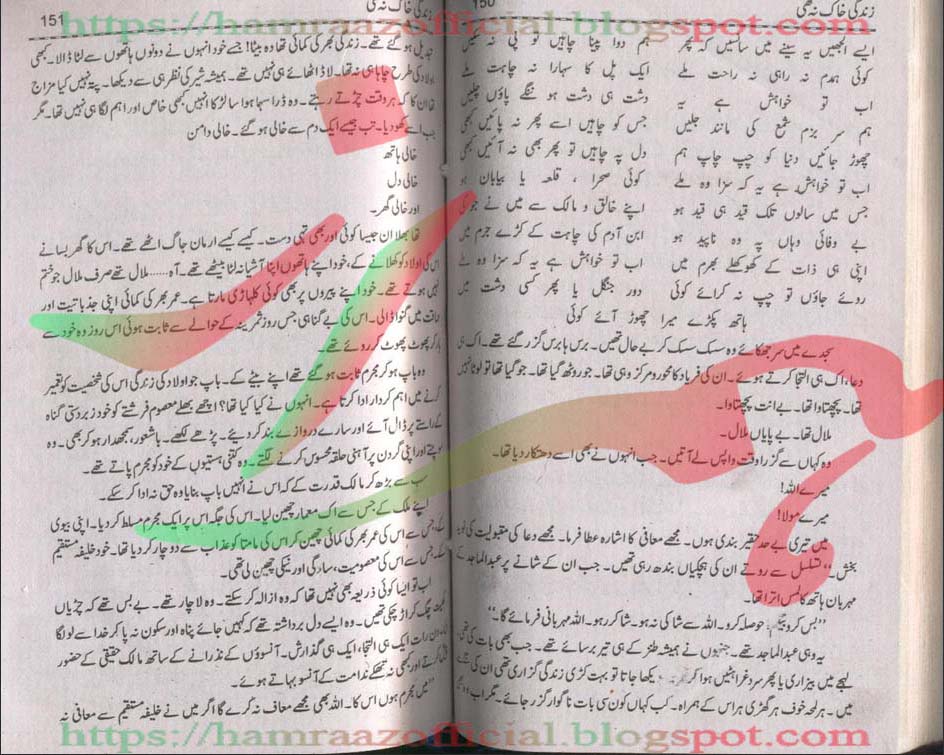 https://hamraazofficial.blogspot.com
زندگی خاک نہ تھی
150
ایسے الجھیں یہ سینے میں سانسیں کہ پھر
ہم دوا پینا چاہیں تو پی نہ سکیں
کوئی ہمدم نہ راہی نہ راحت ملے
ایک پل کا سہارا نہ چاہت ملے
اب تو خواہش ہے یہ
دشت ہی دشت ہو ننگے پاؤں چلیں
ہم سر بزم شمع کی مانند جلیں
جس کو چاہیں اسے پھر نہ پائیں کبھی
چھوڑ جائیں دنیا کو چپ چاپ ہم
دل یہ چاہیں تو پھر بھی نہ آئیں کبھی
اب تو خواہش ہے یہ کہ سزا وہ ملے
کوئی صحرا ، قلعہ یا بیابان ہو
جس میں سالوں تلک قید ہی قید ہو
اپنے خالق و مالک سے میں نے جو کی
بے وفائی وہاں پہ وہ ناپید ہو
ابن آدم کی چاہت کے کڑے جرم میں
اپنی ہی ذات کے کھوکھلے بھرم میں
اب تو خواہش ہے یہ کہ سزا وہ ملے
روئے جاؤں تو چپ نہ کرائے کوئی
دور جنگل یا پھر کسی دشت میں
ہاتھ پکڑے میرا چھوڑ آئے کوئی
سجدے میں سر جھکائے وہ سسک سسک کر بے حال تھیں۔ برس ہا برس گزر گئے تھے۔ اک ہی
دعا، اک ہی التجا کرتے ہوئے۔ ان کی فریاد کا محور و مرکز وہی تھا۔ جو روٹھ گیا تھا۔ جو گیا تھا تو لوٹا نہیں
تھا۔ پچھتاوا تھا۔ بے انت پچھتاوا۔
ملال تھا۔ بے پایاں ملال۔
وہ کہاں سے گزرا وقت واپس لے آتیں۔ جب انہوں نے بھی اسے دھتکار دیا تھا۔
میرے اللہ!
میرے مولا!
میں تیری بے حد حقیر بندی ہوں۔ مجھے معافی کا اشارہ عطا فرما۔ مجھے دعا کی مقبولیت کی نوید
بخش۔“ تسلسل سے روتے ان کی ہچکیاں بندھ رہی تھیں۔ جب ان کے شانے پر عبدالماجد کے
مہربان ہاتھ کا لمس اترا تھا۔
”بس کرو بیگم! حوصلہ کرو۔ اللہ سے شاکی نہ ہو۔ شاکر رہو۔ اللہ مہربانی فرمائے گا۔“
یہ وہی عبدالماجد تھے۔ جنہوں نے ہمیشہ طنز کے ہی تیر برسائے تھے۔ جب بھی بات کی تھی
لہجے میں بیزاری یا پھر سرد غراہٹیں ہوا کرتیں۔ دیکھا جاتا تو بہت کڑی زندگی گزاری تھی ان کی
میں۔ ہر لمحہ خوف ہر گھڑی ہراس کے ہمراہ۔ کب کہاں کون سی بات ناگوار گزر جائے۔ مگر اب وہ
151
زندگی خاک نہ تھی
تبدیل ہو گئے تھے۔ زندگی بھر کی کمائی تھا وہ بیٹا! جسے خود انہوں نے دونوں ہاتھوں سے لٹا ڈالا۔ کبھی
اولاد کی طرح چاہا ہی نہ تھا۔ لاڈ اٹھائے ہی نہیں تھے۔ ہمیشہ شیر کی نظر ہی سے دیکھا۔ پتہ نہیں کیا مزاج
تھا ان کا کہ ہر وقت چڑتے رہتے۔ وہ ڈرا سہما ہوا سا لڑکا انہیں کبھی خاص اور اہم لگا ہی نہیں تھا۔ مگر
جب اسے کھو دیا۔ تب جیسے ایک دم سے خالی ہو گئے۔ خالی دامن
خالی ہاتھ
خالی دل
اور خالی گھر۔
تھا بھلا ان جیسا کوئی اور بھی تہی دست۔ کیسے کیسے ارمان جاگ اٹھے تھے۔ اس کا گھر بسانے
اس کی اولاد کو کھلانے کے، خود اپنے ہاتھوں اپنا آشیانہ لٹا بیٹھے تھے۔ آہ......ملال تھے صرف ملال جو ختم
نہیں ہوتے تھے۔ خود اپنے پیروں پر بھی کوئی کلہاڑی مارتا ہے۔ عمر بھر کی کمائی اپنی جذباتیت اور
حماقت میں گنوا ڈالی۔ اس کی بے گناہی جس روز شرینہ کے حوالے سے ثابت ہوئی اس روز وہ خود سے
ہار کر پھوٹ پھوٹ کر روئے تھے۔
وہ باپ ہو کر مجرم ثابت ہو گئے تھے اپنے بیٹے کے۔ باپ جو اولاد کی زندگی اس کی شخصیت کو تعمیر
کرنے میں اہم کردار ادا کرتا ہے۔ انہوں نے کیا کیا تھا؟ اچھے بھلے معصوم فرشتے کو خود زبردستی گناہ
کے راستے پر ڈال آئے اور سارے دروازے بند کر دیئے۔ پڑھے لکھے۔ باشعور، سمجھدار ہو کر بھی۔ وہ
سوچتے اور اپنی گردن پر آہنی حلقہ محسوس کرنے لگتے۔ وہ کتنی ہستیوں کے خود کو مجرم پاتے تھے۔
سب سے بڑھ کر مالک قدرت کے کہ اس نے انہیں باپ بنایا وہ حق نہ ادا کر سکے۔
اپنے ملک کے جس سے اک معمار چھین لیا۔ اس کی جگہ اس پر ایک مجرم مسلط کر دیا۔ اپنی بیوی
کے، جس سے اس کی عمر بھر کی کمائی چھین کر اس کی مامتا کو عذاب سے دوچار کر دیا تھا۔ خود خلیفہ مستقیم
کے جس سے اس کی معصومیت، سادگی اور نیکی چھین لی تھی۔
اب تو ایسا کوئی ذریعہ بھی نہیں تھا کہ وہ ازالہ کر سکتے۔ وہ لاچار تھے۔ بے بس تھے کہ چڑیاں
کھیت چگ کر اڑ چکی تھیں۔ وہ ایسے دل برداشتہ تھے کہ کہیں جائے پناہ اور سکون نہ پا کر خدا سے لو لگا
دن رات ایک ہی التجا، ایک ہی گذارش۔ آنسوؤں کے نذرانے کے ساتھ مالک حقیقی کے حضور
کرتے اور کبھی نہ تھکے ندامت کے آنسو بہاتے ہوئے۔
”میں مجرم ہوں اس کا۔ اللہ بھی مجھے معاف نہ کرے گا اگر میں نے خلیفہ مستقیم سے معافی نہ
https://hamraazofficial.blogspot.com